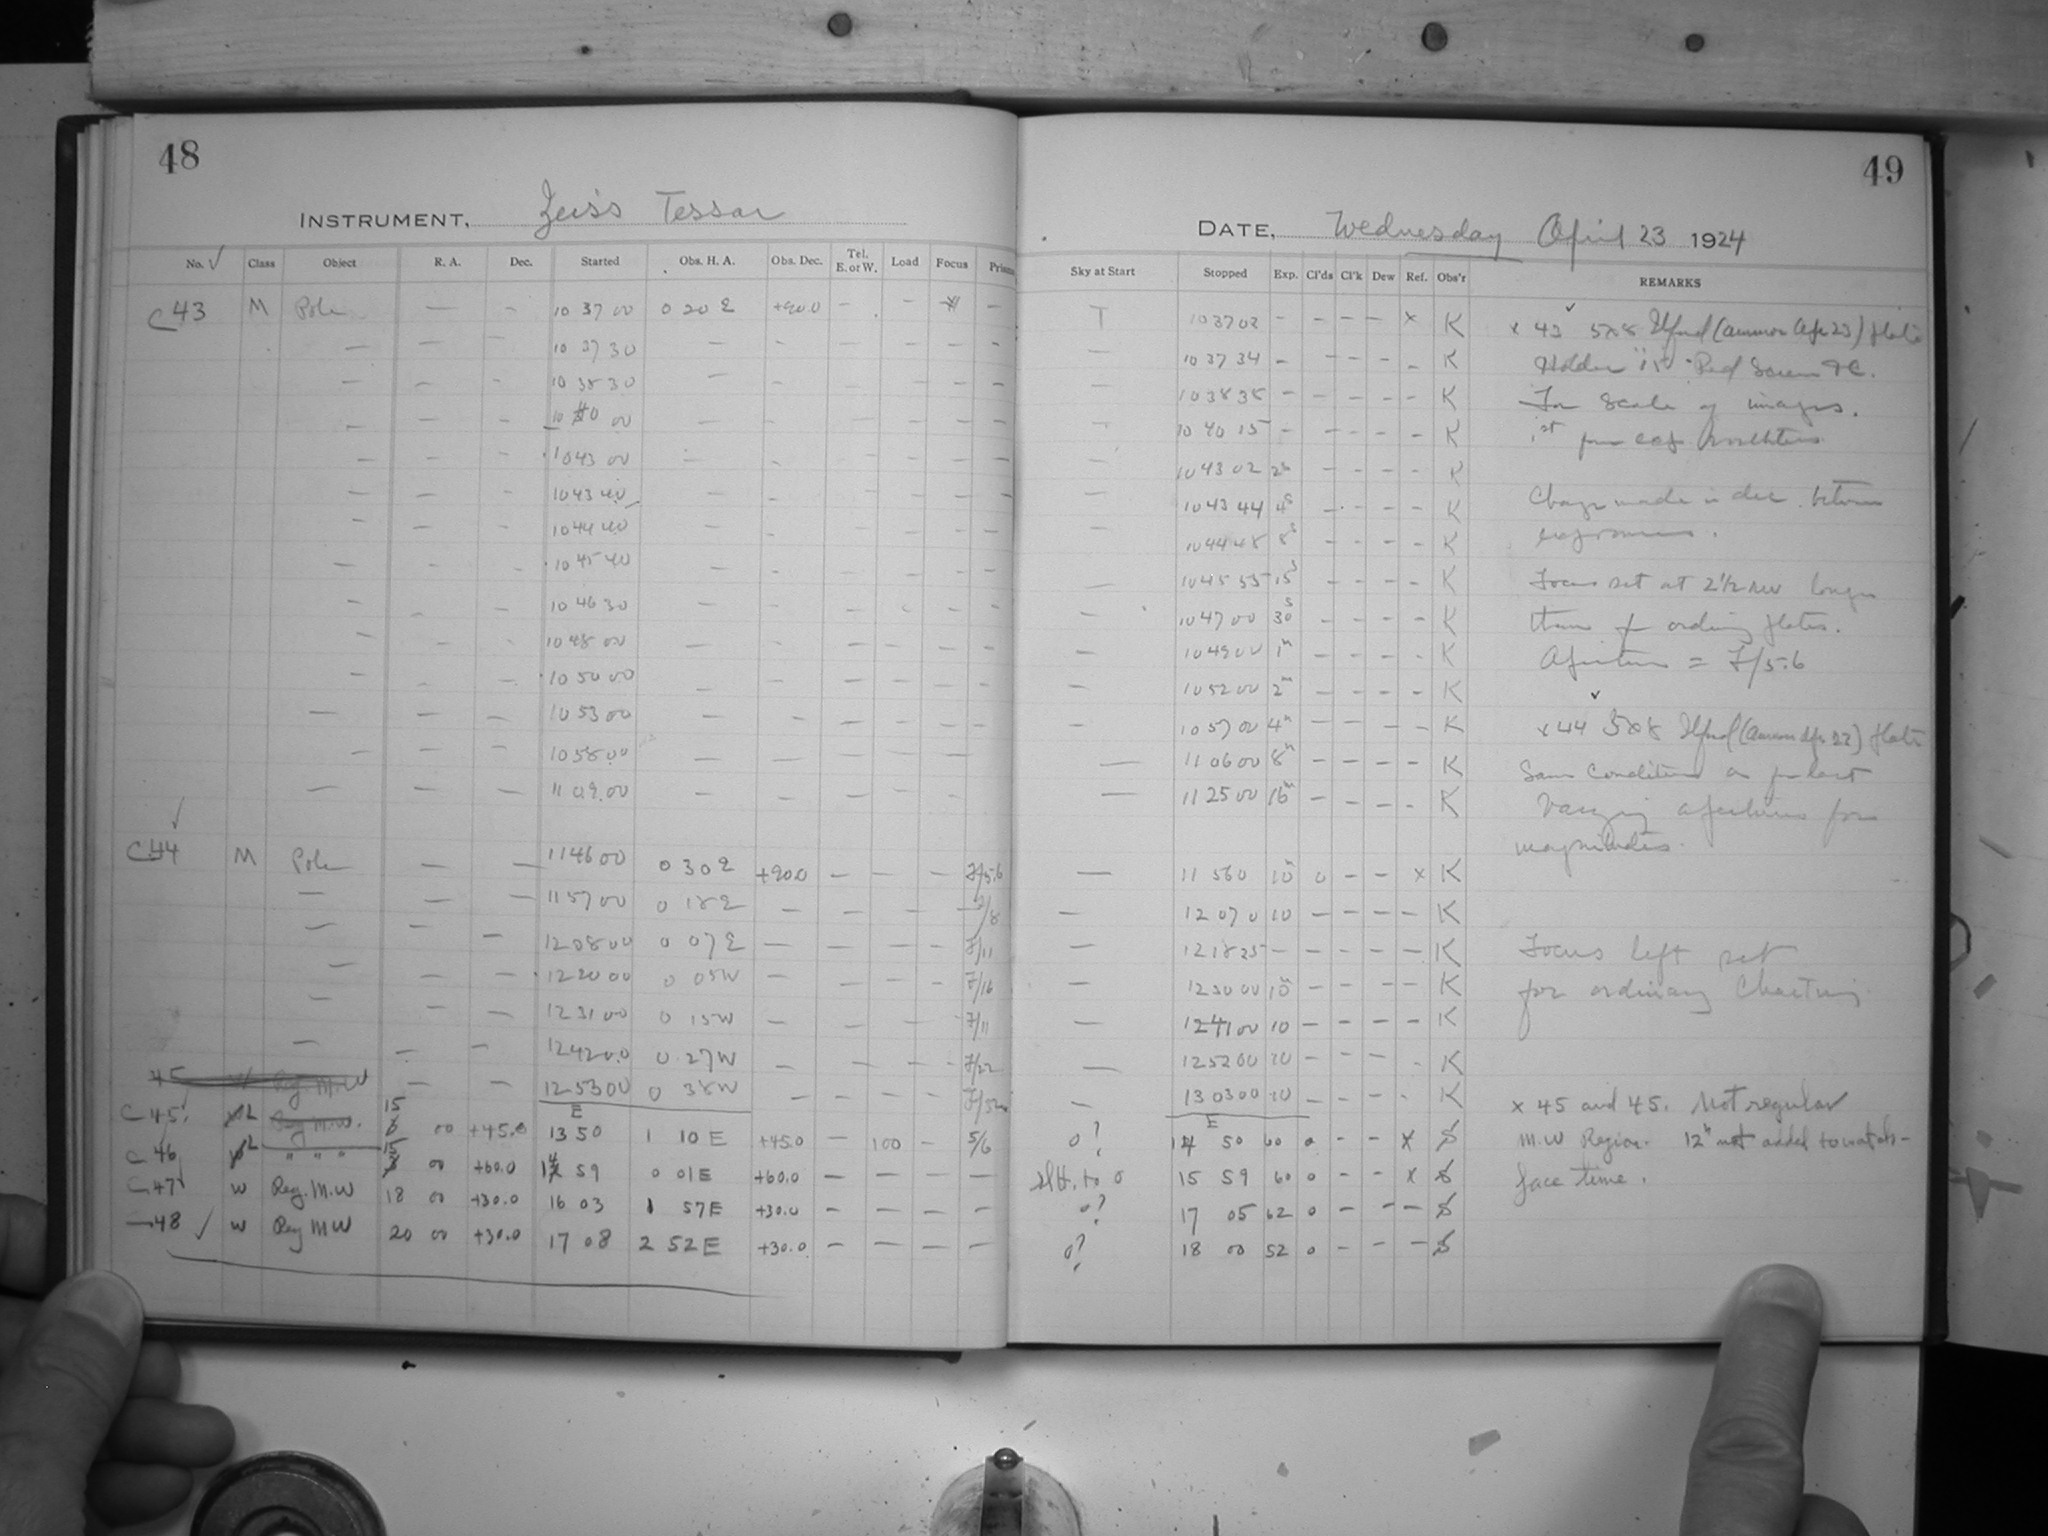 48
INSTRUMENT, Zeiss Tessar
No. ✓ Class Object R. A. Dec. Started Obs. H. A. Obs. Dec. Tel. E. or W. Load Focus Prism
C 43 M Pole — - 10 37 00 0 20 E +90.0 - - -
— — - 10 37 30 - - - - - -
— - - 10 38 30
— - - 10 40 00
— - - 10 43 00
— - - 10 43 40
— - - 10 44 40
— - - 10 45 40
— - - 10 46 30
— - - 10 48 00
— - - 10 50 00
— - - 10 53 00
— - - 10 58 00
— - - 11 09 00
C 44 M Pole — — 11 46 00 0 30 E +90.0 — — - F/5.6
— — — 11 57 00 0 18 E — — — — F/8
— — — 12 08 00 0 07 E — — — - F/11
— — - 12 20 00 0 05 W — — — — F/16
— — — 12 31 00 0 15 W — — — — F/11
— — — 12 42 00 0 27 W — — — — F/22
45 Reg. M.W — — 12 53 00 0 38 W — — — — F/32
C 45 L Reg M.W. 15 00 +45.0 13 50 1 10 E +45.0 — 100 - 5/6
C 46 L " " " 15 00 +60.0 14 59 0 01 E +60.0 — — — —
C 47 W Reg. M.W 18 00 +30.0 16 03 1 57 E +30.0 — — — —
48 ✓ W Reg MW 20 00 +30.0 17 08 2 52 E +30.0 — — — —
49
DATE, Wednesday April 23 1924
Sky at Start Stopped Exp. Cl'ds Cl'k Dew Ref. Obs'r REMARKS
10 37 02 - - - - x K x 43 5x8 Ilford
— 10 37 34 - - - - - K Holder Red Screen
— 10 38 38 - - - - - K For scale of images.
10 40 15 - - - - - K 1st
— 10 43 02 2s - - - - K
— 10 43 44 4s - - - - K Change made in dec. between
— 10 44 48 8s - - - - K exposures.
— 10 45 55 15s - - - - K Focus set at 2 1/2 rev longer
— 10 47 00 30s - - - - K than for ordinary plates.
— 10 49 00 1m - - - - K Aperture = F/5.6
— 10 52 00 2m - - - - K
— 10 57 00 4m - - - - K x 44 5x8 Ilford
— 11 06 00 8m - - - - K Same conditions as for last
— 11 25 00 16m - - - - K Varying apertures for
magnitudes.
— 11 56 0 10m 0 - - x K
— 12 07 0 10 - - - - K
— 12 18 25 - - - - - K Focus left set
— 12 30 00 10m - - - - K for ordinary Charting
— 12 41 00 10 - - - - K
— 12 52 00 10 - - - - K
— 13 03 00 10 - - - - K x 45 and 45. Not regular
0? 14 50 60 0 - - x S M.W Region. 12h not added to watch-
Slt. to 0 15 59 60 0 - - x S face time.
0? 17 05 62 0 - - - S
0? 18 00 52 0 - - - S